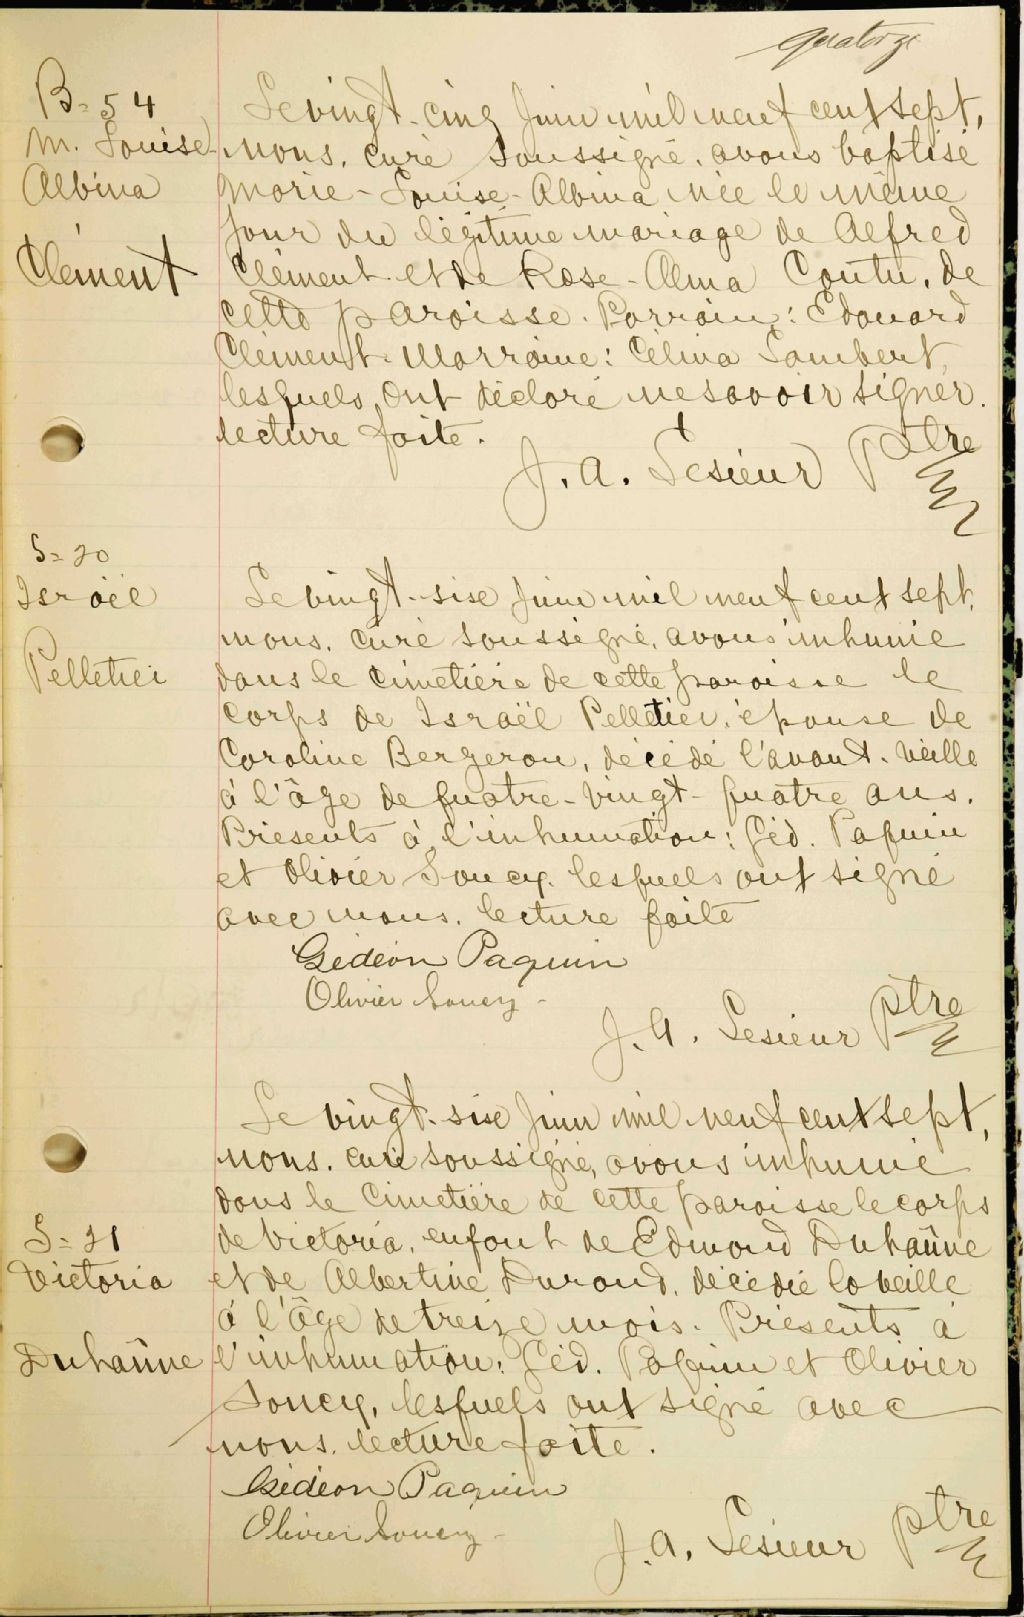 quatorze
B=54
M. Louise-
Albina
Clément
Le vingt-cinq Juin mil neuf cent sept,
nous, curé soussigné, avons baptisé
Marie-Louise-Albina née le même
jour du légitime mariage de Alfred
Clément et de Rose-Alma Coutu, de
cette paroisse. Parrain: Edouard
Clément. Marraine: Célina Lambert,
lesquels ont déclaré ne savoir signer.
lecture faite.
J. A. Lesieur Ptre
S=20
Israël
Pelletier
Le vingt-six Juin mil neuf cent sept,
nous, curé soussigné, avons inhumé
dans le cimetière de cette paroisse le
corps de Israël Pelletier, épouse de
Caroline Bergeron, décédé l'avant-veille
à l'âge de quatre-vingt-quatre ans.
Présents à l'inhumation: Géd. Paquin
et Olivier Soucy, lesquels ont signé
avec nous. lecture faite
Gédéon Paquin
Olivier Soucy-
J. A. Lesieur Ptre
S=21
Victoria
Duhaîme
Le vingt-six Juin mil neuf cent sept,
nous, curé soussigné, avons inhumé
dans le cimetière de cette paroisse le corps
de Victoria, enfant de Edmond Duhaîme
et de Albertine Durand, décédée la veille
à l'âge de treize mois. Présents à
l'inhumation: Géd. Paquin et Olivier
Soucy, lesquels ont signé avec
nous. lecture faite.
Gédéon Paquin
Olivier Soucy-
J. A. Lesieur ptre